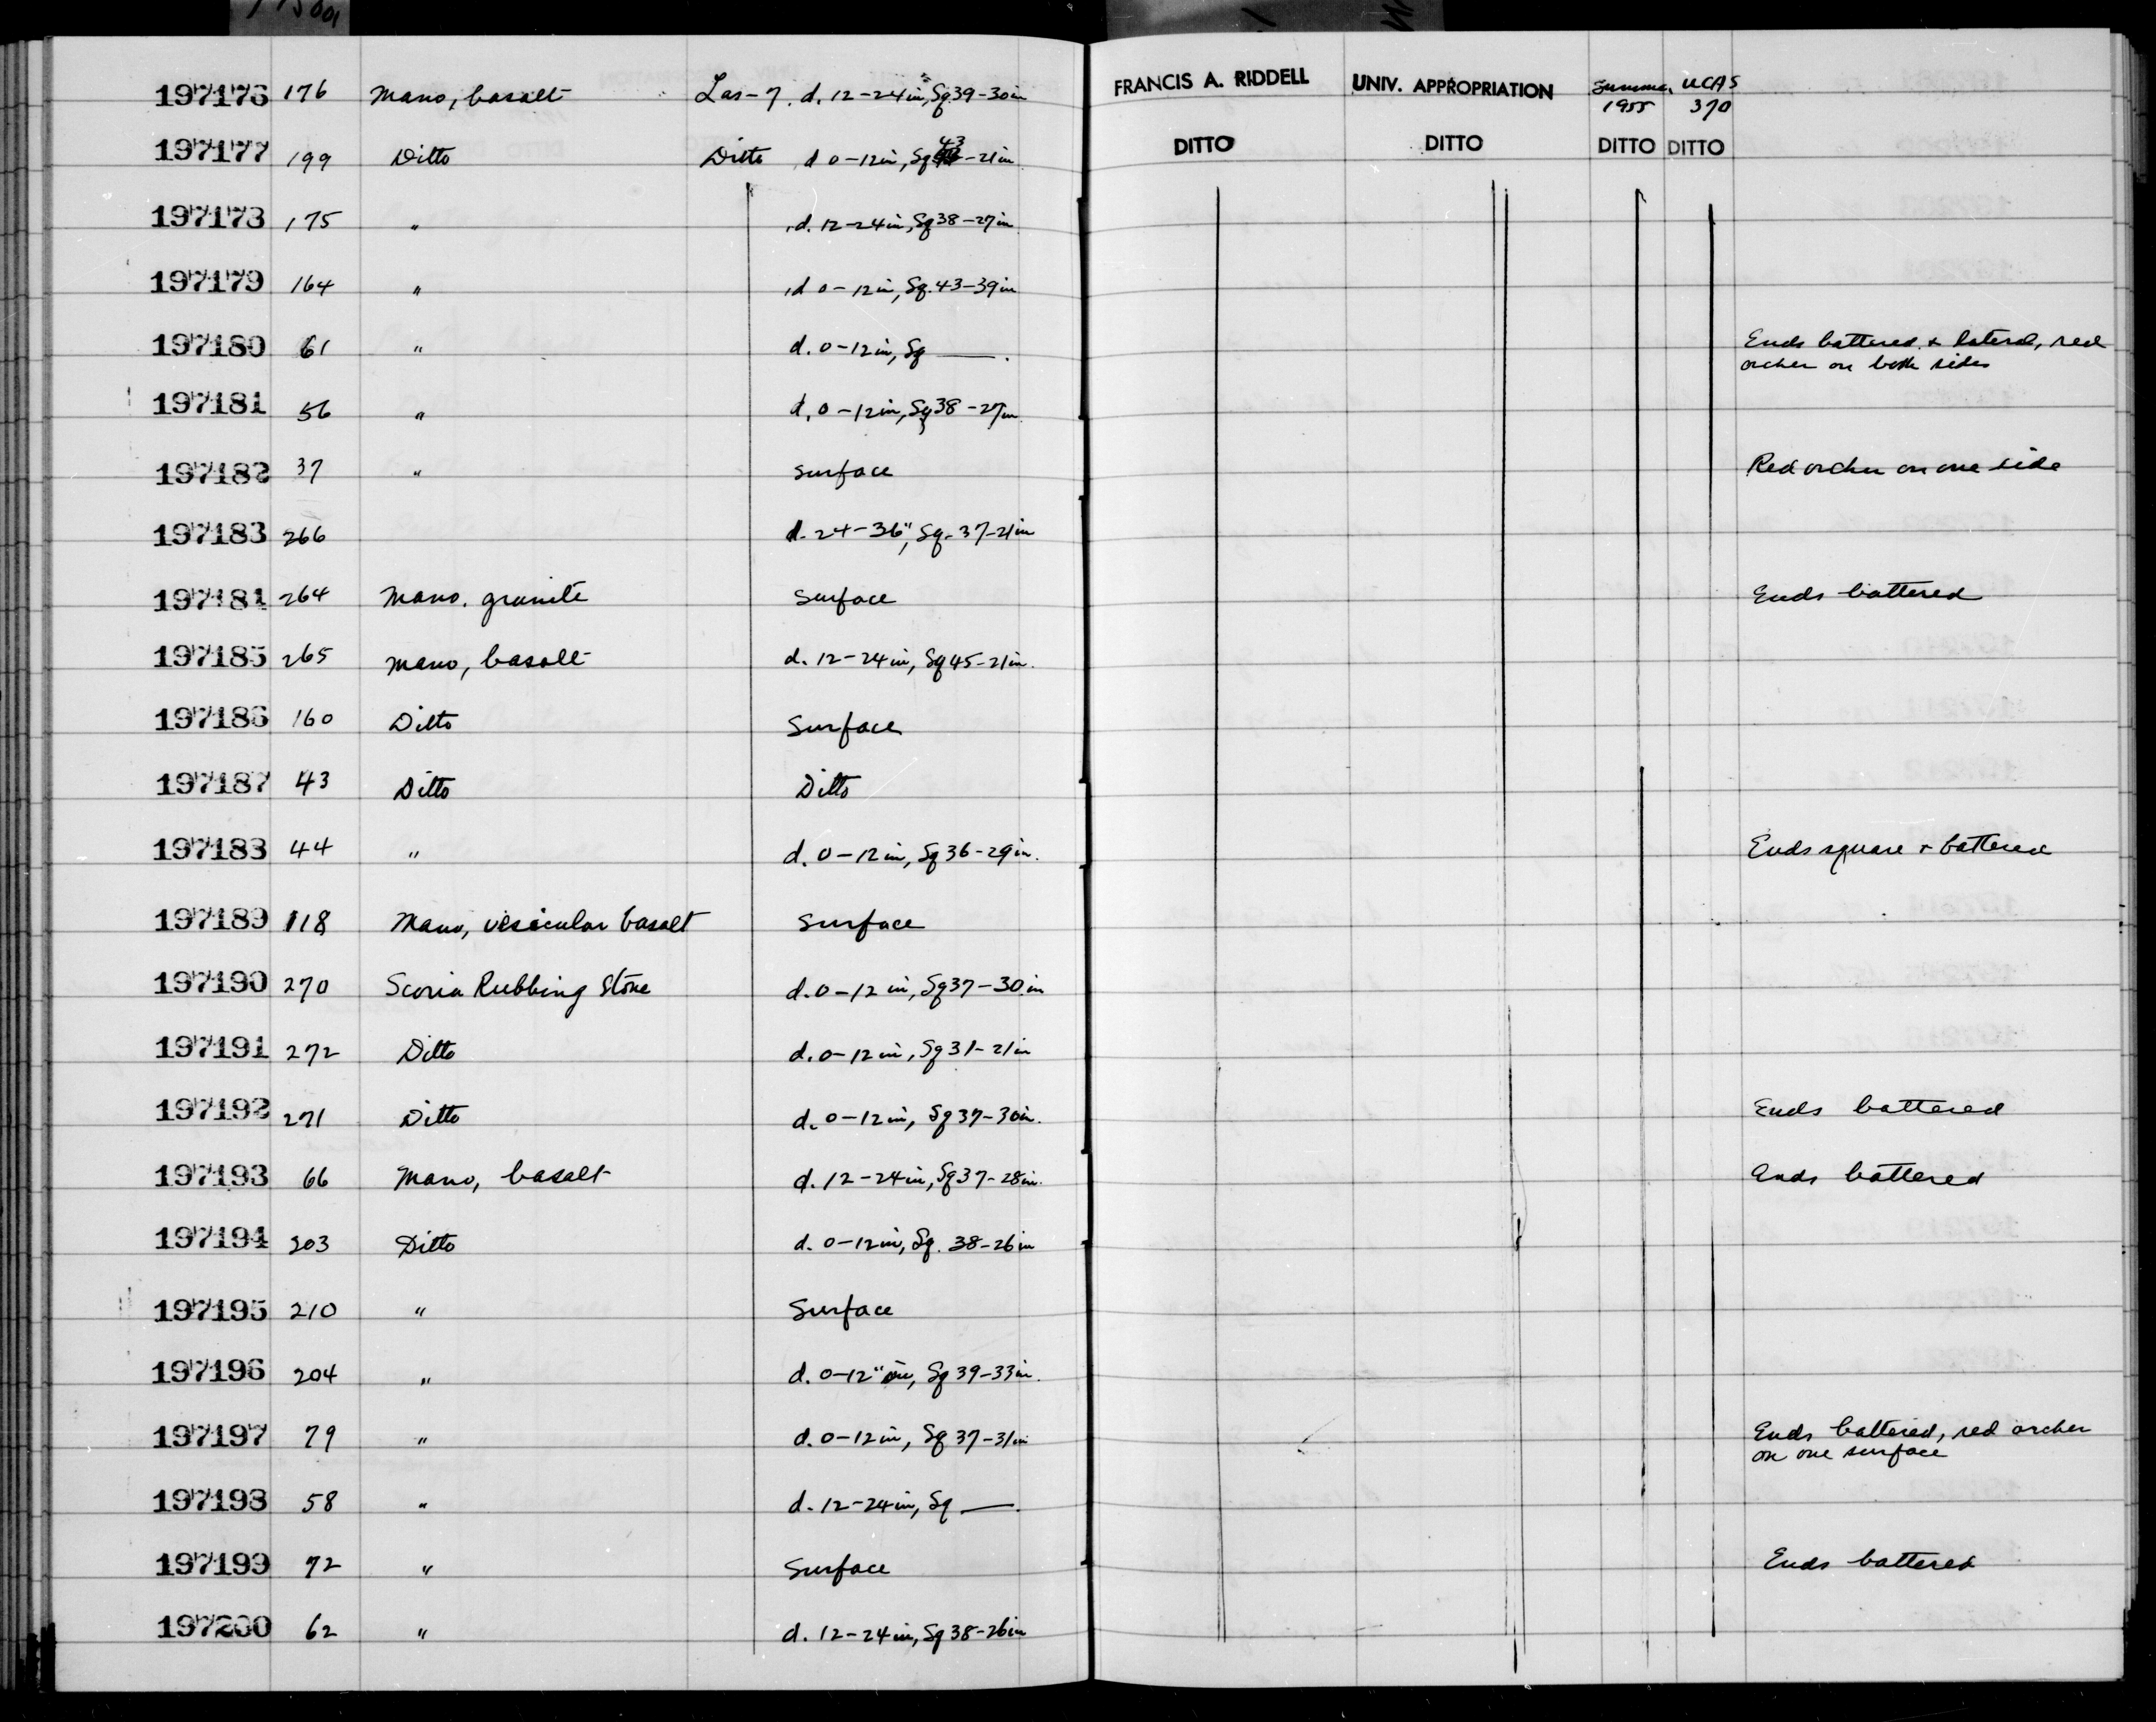 197176 176 Mano, basalt Las-7. d. 12-24in, Sq 39-30in FRANCIS A. RIDDELL UNIV. APPROPRIATION Summer 1955 UCAS 370
197177 199 Ditto Ditto d 0-12in, Sq 43-21in DITTO DITTO DITTO DITTO
197178 175 " d. 12-24in, Sq 38-27in
197179 164 " d 0-12in, Sq. 43-39in
197180 61 " d. 0-12in, Sq —. Ends battered & lateral, red
ocher on both sides
197181 56 " d. 0-12in, Sq 38-27in
197182 37 " surface Red ocher on one side
197183 266 d. 24-36", Sq. 37-21in
197184 264 Mano. granite Surface Ends battered
197185 265 Mano, basalt d. 12-24in, Sq 45-21in.
197186 160 Ditto Surface
197187 43 Ditto Ditto
197188 44 " d. 0-12in, Sq 36-29in. Ends square & battered
197189 118 Mano, vesicular basalt Surface
197190 270 Scoria Rubbing Stone d. 0-12 in, Sq 37-30in
197191 272 Ditto d. 0-12in, Sq 31-21in
197192 271 Ditto d. 0-12in, Sq 37-30in. Ends battered
197193 66 Mano, basalt d. 12-24in, Sq 37-28in. Ends battered
197194 203 Ditto d. 0-12in, Sq. 38-26in
197195 210 " Surface
197196 204 " d. 0-12", Sq 39-33in.
197197 79 " d. 0-12in, Sq 37-31in Ends battered, red ocher
on one surface
197198 58 " d. 12-24in, Sq —.
197199 72 " Surface Ends battered
197200 62 " d. 12-24in, Sq 38-26in